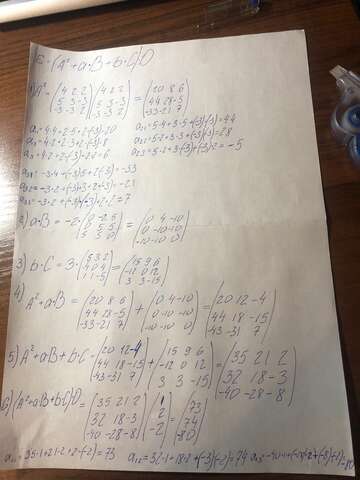 E = (A²+a·B+b·C)D
1) A² = (4 2 2 / 5 3 -3 / -3 -3 2) (4 2 2 / 5 3 -3 / -3 -3 2) = (20 8 6 / 44 28 -5 / -33 -21 7)
a₁₁ = 4·4+2·5+2·(-3)=20 a₂₁ = 5·4+3·5+(-3)(-3)=44
a₁₂ = 4·2+2·3+2·(-3)=8 a₂₂ = 5·2+3·3+(-3)(-3)=28
a₁₃ = 4·2+2·(-3)+2·2=6 a₂₃ = 5·2+3·(-3)+(-3)·2 = -5
a₃₁ = -3·4+(-3)5+2(-3) = -33
a₃₂ = -3·2+(-3)·3+2·(-3) = -21
a₃₃ = -3·2+(-3)(-3)+2·2 = 7
2) a·B = -2·(0 -2 5 / 0 5 5 / 5 5 0) = (0 4 -10 / 0 -10 -10 / -10 -10 0)
3) b·C = 3·(5 3 2 / -4 0 4 / 1 1 -5) = (15 9 6 / -12 0 12 / 3 3 -15)
4) A²+a·B = (20 8 6 / 44 28 -5 / -33 -21 7) + (0 4 -10 / 0 -10 -10 / -10 -10 0) = (20 12 -4 / 44 18 -15 / -43 -31 7)
5) A²+a·B+b·C = (20 12 -4 / 44 18 -15 / -43 -31 7) + (15 9 6 / -12 0 12 / 3 3 -15) = (35 21 2 / 32 18 -3 / -40 -28 -8)
6) (A²+aB+bC)D = (35 21 2 / 32 18 -3 / -40 -28 -8) (1 / 2 / -2) = (73 / 74 / -80)
a₁₁ = 35·1+21·2+2·(-2)=73 a₁₂ = 32·1+18·2+(-3)(-2)=74